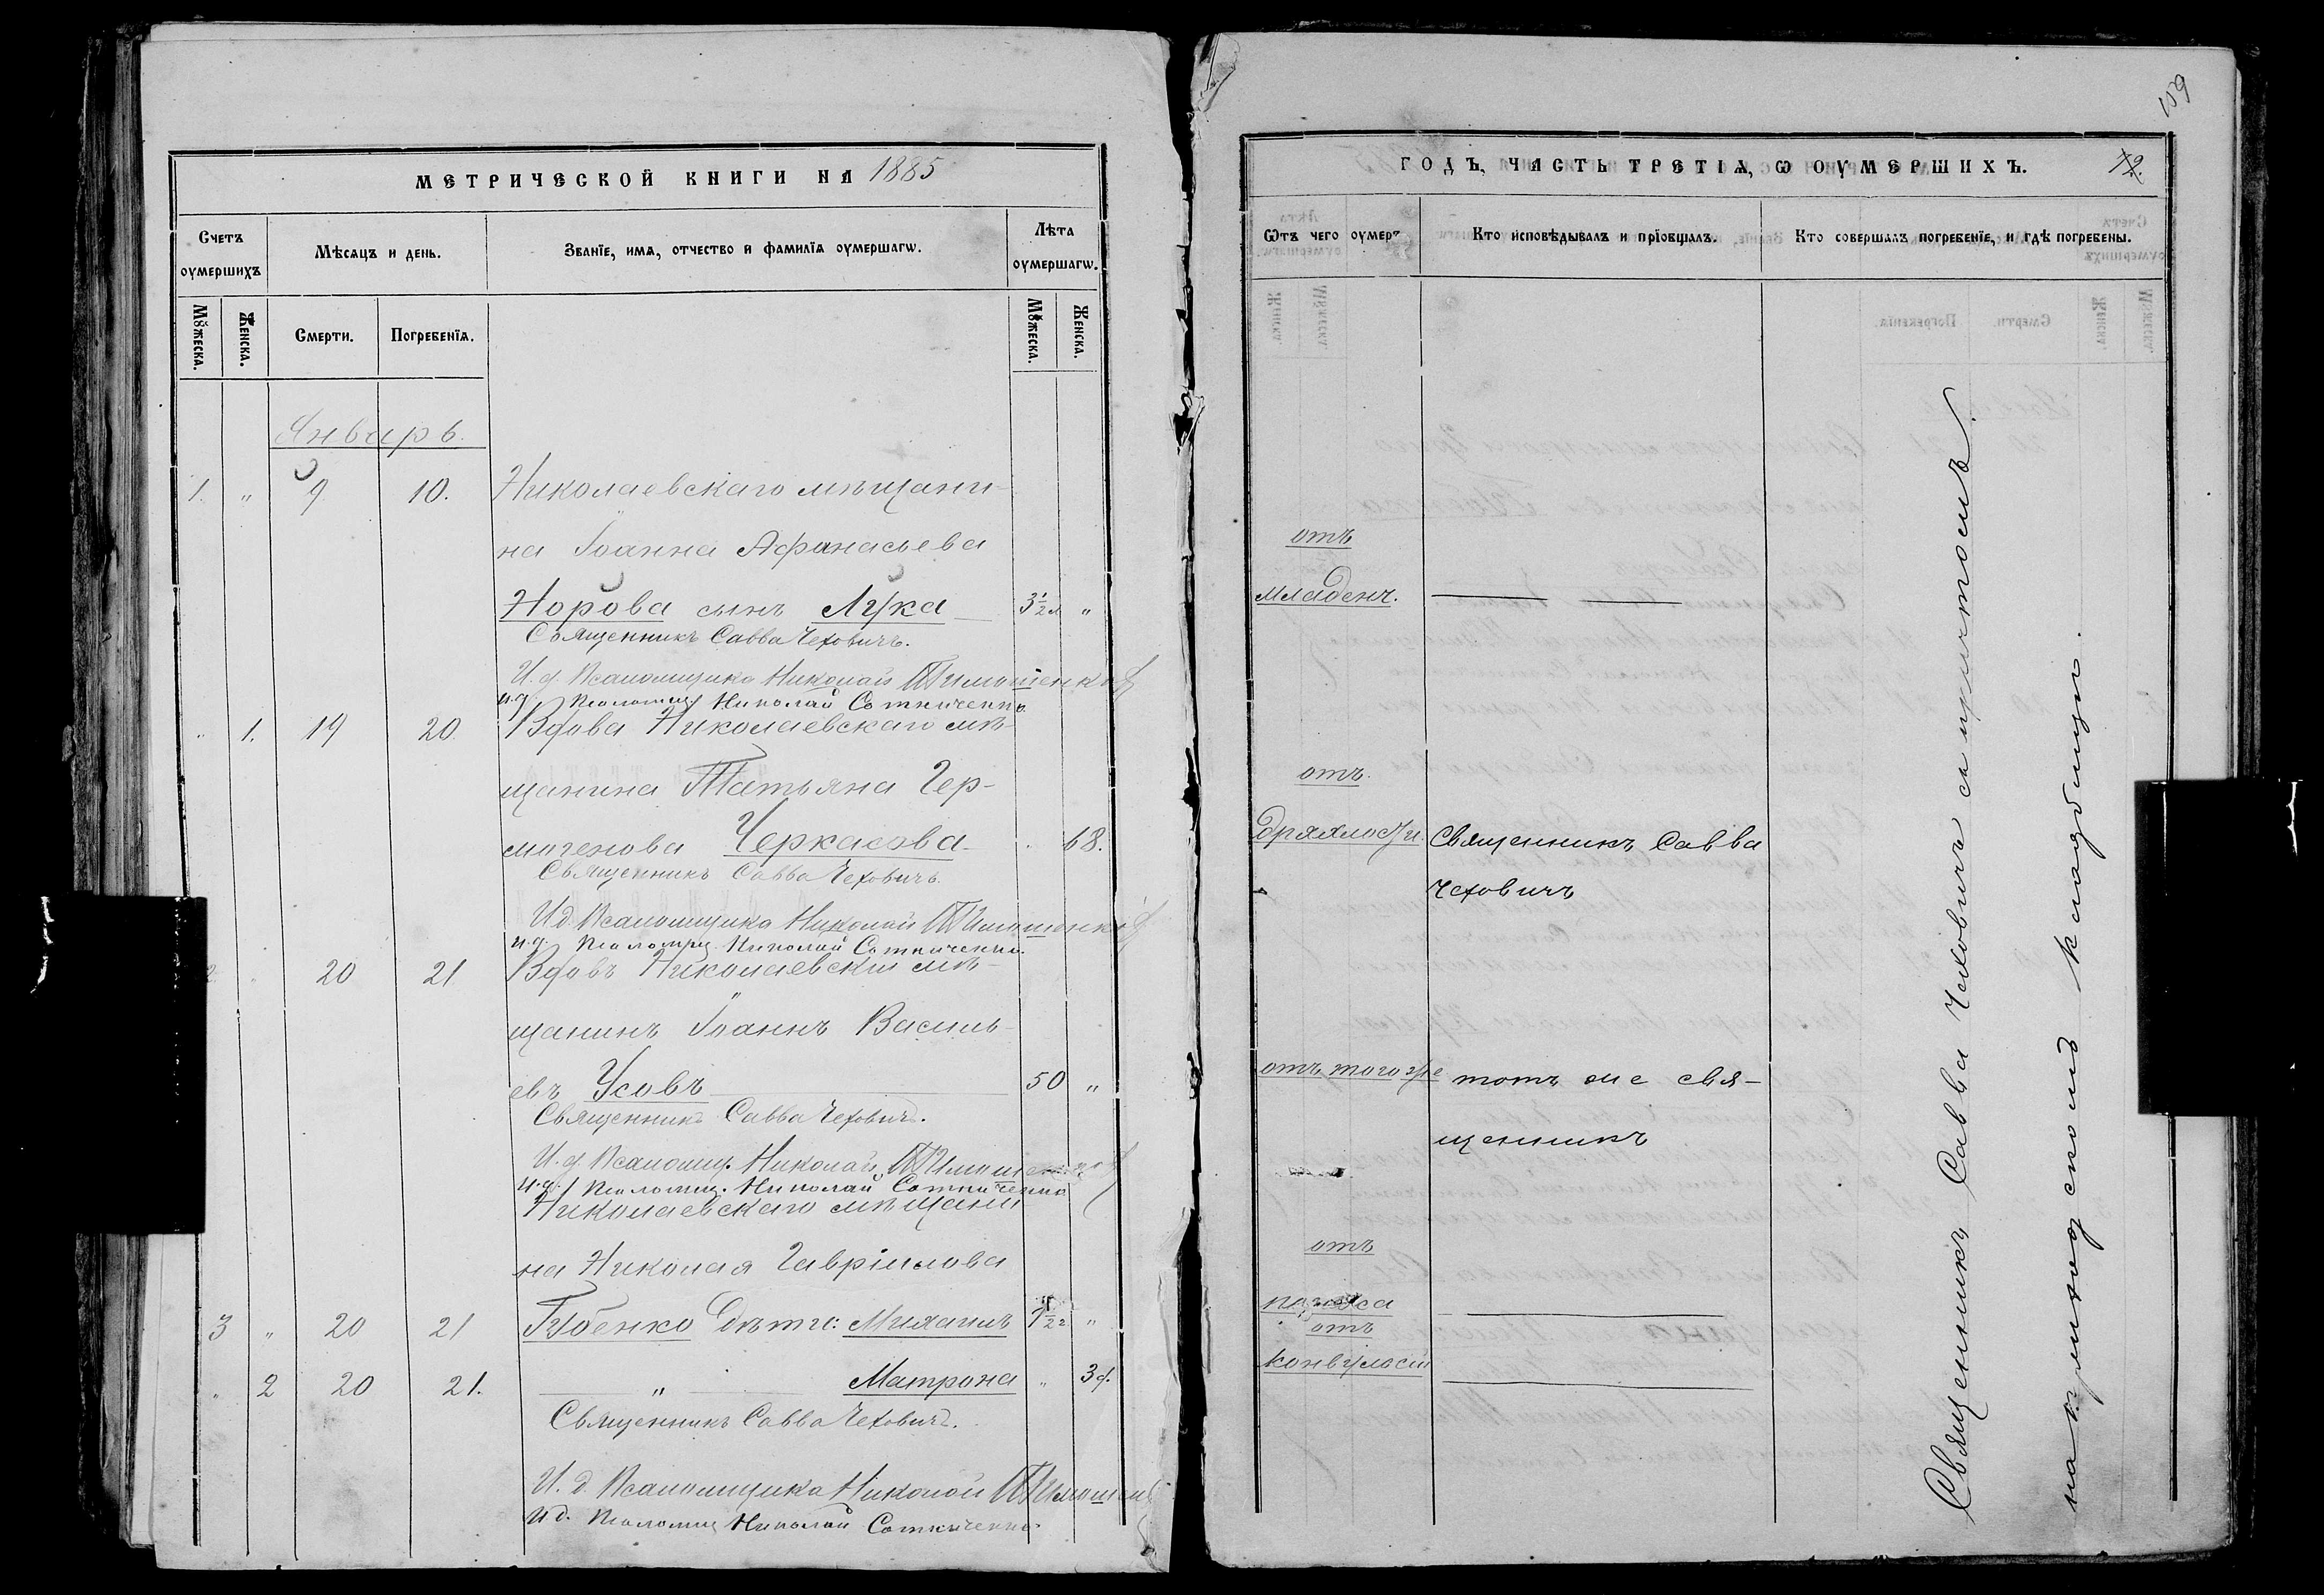 МЕТРИЧЕСКОЙ КНИГИ НА 1885
Счетъ оумершихъ
Мѣсяцъ и день.
Званіе, имя, отчество и фамилія оумершагѡ.
Лѣта оумершагѡ.
Мꙋжеска.
Женска.
Смерти.
Погребенія.
Мꙋжеска.
Женска.
Январь.
1. " 9 10. Николаевскаго мѣщани-
на Іоанна Афанасьева
Норова сынъ Лука 3½ л "
Священникъ Савва Чеховичъ.
И. д. Псаломщика Николай Тимошенко
и.д. Псаломщ. Николай Сотниченко
" 1. 19 20. Вдова Николаевскаго мѣ-
щанина Татьяна Гер-
могенова Черкасова 68.
Священникъ Савва Чеховичъ.
И.д. Псаломщика Николай Тимошенко
и.д. Псаломщ. Николай Сотниченко.
2 " 20 21 Вдовъ Николаевскій мѣ-
щанинъ Іоаннъ Василь-
евъ Усовъ 50 "
Священникъ Савва Чеховичъ.
И. д. Псаломщ. Николай Тимошенко
и.д. Псаломщ. Николай Сотниченко
Николаевскаго мѣщани
на Николая Гавріилова
3 " 20 21 Губенко дѣти: Михаилъ "
" 2 20 21. " Матрона " 3 д.
Священникъ Савва Чеховичъ.
И. д. Псаломщика Николай
И д. Псаломщ Николай Сотниченко
109
ГОДЪ, ЧАСТЬ ТРЕТІЯ, Ѡ ОУМЕРШИХЪ. 12.
Ѿтъ чего оумеръ
Кто исповѣдывалъ и пріобщалъ.
Кто совершалъ погребеніе, и гдѣ погребены.
отъ
младенч.
отъ
дряхлости. Священникъ Савва
Чеховичъ
отъ того же тотъ же свя-
щенникъ
отъ
отъ
конвульсій
Священникъ Савва Чеховичъ съ причтомъ
на приходскомъ кладбищѣ.